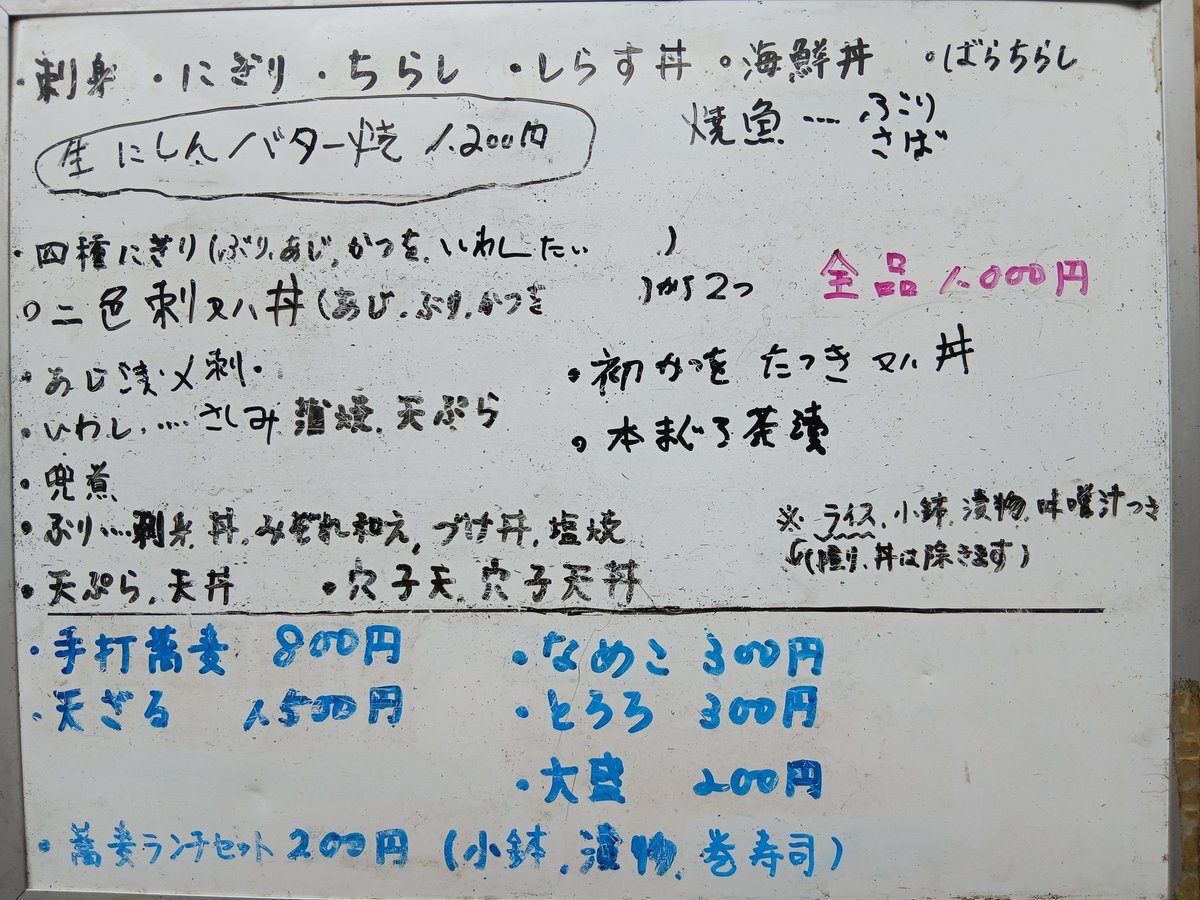 ・刺身 ・にぎり ・ちらし ・しらす丼 ・海鮮丼 ・ばらちらし
生にしんバター焼 1.200円
焼魚…. ぶり
さば
・四種にぎり(ぶり,あじ,かつを,いわし たい )
全品 1.000円
・二色刺又ハ丼(あじ.ぶり.かつを )から2つ
・あじ漬〆刺・
・初かつを たつき又ハ丼
・いわし….. さしみ 蒲焼.天ぷら
・本まぐろ茶漬
・兜煮
・ぶり….刺身.丼.みぞれ和え,づけ丼.塩焼
※ライス.小鉢.漬物.味噌汁つき
丼は除きます)
・天ぷら.天丼 ・穴子天.穴子天丼
・手打蕎麦 800円 ・なめこ 300円
・天ざる 1.500円 ・とろろ 300円
・大盛 200円
・蕎麦ランチセット 200円 (小鉢.漬物.巻寿司)